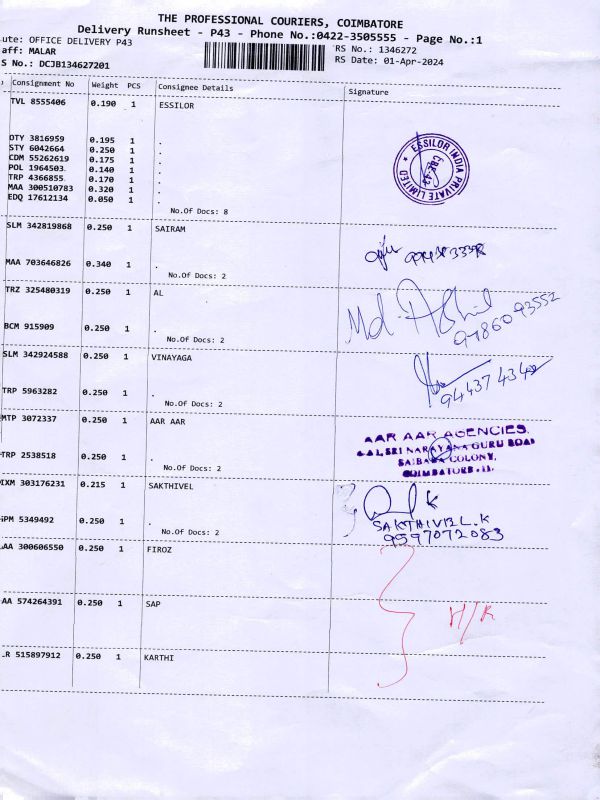 THE PROFESSIONAL COURIERS, COIMBATORE
Delivery Runsheet - P43 - Phone No.:0422-3505555 - Page No.:1
ute: OFFICE DELIVERY P43
aff: MALAR
RS No.: 1346272
S No.: DCJB134627201
RS Date: 01-Apr-2024
Consignment No Weight PCS Consignee Details Signature
TVL 8555406 0.190 1 ESSILOR
DTY 3816959 0.195 1 .
STY 6042664 0.250 1 .
CDM 55262619 0.175 1 .
POL 1964503 0.140 1 .
TRP 4366855 0.170 1 .
MAA 300510783 0.320 1 .
EDQ 17612134 0.050 1 .
No.Of Docs: 8
ESSILOR INDIA PRIVATE LIMITED
SLM 342819868 0.250 1 SAIRAM
MAA 703646826 0.340 1 .
No.Of Docs: 2
TRZ 325480319 0.250 1 AL
BCM 915909 0.250 1 .
No.Of Docs: 2
Md. Abhil
9786093552
SLM 342924588 0.250 1 VINAYAGA
TRP 5963282 0.250 1 .
No.Of Docs: 2
MTP 3072337 0.250 1 AAR AAR
TRP 2538518 0.250 1 .
No.Of Docs: 2
AAR AAR AGENCIES,
SRI NARAYANA GURU ROAD
SAIBABA COLONY,
COIMBATORE - 11.
IXM 303176231 0.215 1 SAKTHIVEL
IPM 5349492 0.250 1 .
No.Of Docs: 2
SAKTHIVEL.K
9597072083
AA 300606550 0.250 1 FIROZ
AA 574264391 0.250 1 SAP
H/R
R 515897912 0.250 1 KARTHI